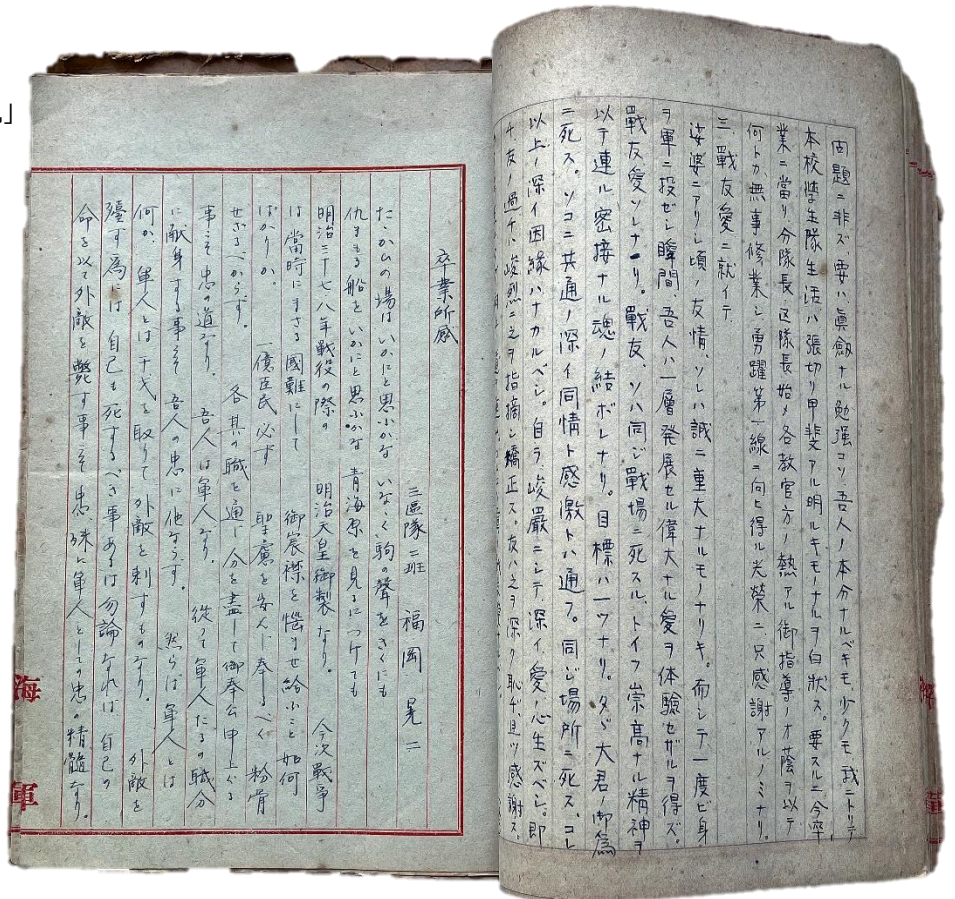 固題ニ非ズ、要ハ眞劔ナル勉强コソ吾人ノ本分ナルベキモ少クモ我ニトリテ
本校学生隊生活ハ張切リ甲斐アル明ルキモノナルヲ白状ス。要スルニ今卒
業ニ當リ分隊長、区隊長始メ各教官方ノ熱アル御指導ノオ蔭ヲ以テ
何トカ無事修業シ勇躍第一線ニ向ヒ得ル光榮ニ只感謝アルノミナリ。
三、戰友愛ニ就イテ
娑婆ニアリシ頃ノ友情、ソレハ誠ニ重大ナルモノナリキ。而シテ一度ビ身
ヲ軍ニ投ゼシ瞬間、吾人ハ一層発展セル偉大ナル愛ヲ体驗セザルヲ得ズ。
戰友愛ソレナリ。戰友、ソハ同ジ戰場ニ死スル、トイフ崇高ナル精神ヲ
以テ連ル密接ナル魂ノ結ボレナリ。目標ハ一ツナリ。タヾ大君ノ御為
ニ死ス。ソコニ共通ノ深イ同情ト感激トハ通フ。同ジ場所ニ死ス、コレ
以上ノ深イ因緣ハナカルベシ。自ラ、峻嚴ニシテ深イ、愛ノ心生ズベシ。即
チ友ノ過チハ峻烈ニ之ヲ指摘シ矯正ス。友ハ之ヲ深ク恥ヂ、且ツ感謝ス。
卒業所感
三區隊二班 福岡 晃二
たゝかひの場はいかにと思ふかな いなゝく駒の聲をきくにも
仇まもる船をいかにと思ふかな 青海原を見るにつけても
明治三十七八年戰役の際の 明治天皇御製なり。 今次戰爭
は當時にまさる國難にして 御宸襟を惱ませ給ふこと如何
ばかりか。 一億臣民必ず 聖慮を安んじ奉るべく 粉骨
せざるべからず。 各其の職を通じ分を盡して御奉公申上ぐる
事こそ忠の道なり。 吾人は軍人なり。 從って軍人たるの職分
に献身する事こそ 吾人の忠に他ならず。 然らば 軍人とは
何か 軍人とは干戈を取りて 外敵を刺すものなり。 外敵を
殪す為には 自己も死するべき事あるは勿論なれば 自己の
命を以て外敵を斃す事こそ 忠 殊に軍人としての忠の精髓なり。
海
軍